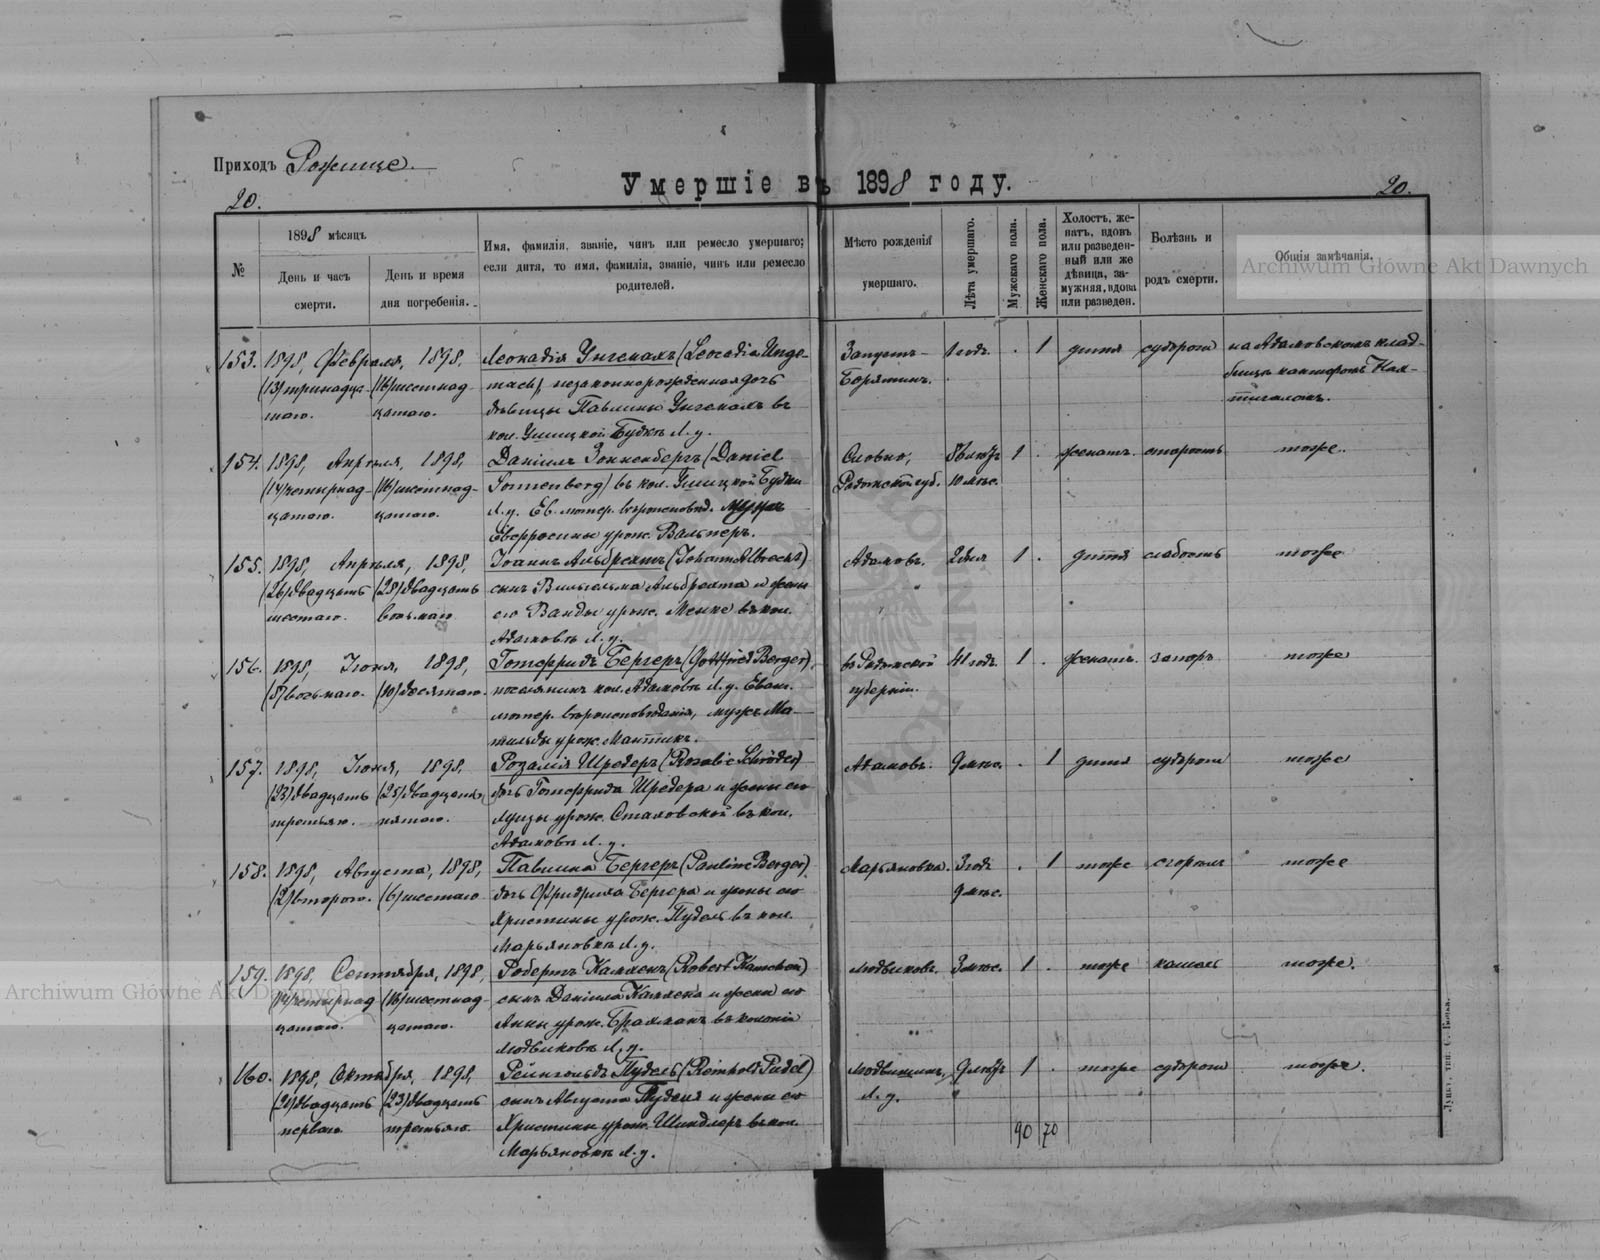 Приходъ Рожище.
Умершіе въ 1898 году.
20.
20.
№
1898 мѣсяцъ
День и часъ смерти.
День и время дня погребенія.
Имя, фамилія, званіе, чинъ или ремесло умершаго;
если дитя, то имя, фамилія, званіе, чинъ или ремесло
родителей.
Мѣсто рожденія
умершаго.
Лѣта умершаго.
Мужскаго пола.
Женскаго пола.
Холостъ, же-
натъ, вдовъ
или разведен-
ный или же
дѣвица, за-
мужняя, вдова
или разведен.
Болѣзнь и
родъ смерти.
Общія замѣчанія.
Archiwum Główne Akt Dawnych
153. 1898, Февраля, 1898, Леокадія Унгемахъ (Leocadia Unge- Запустъ- 1 годъ . 1 дитя судороги на Адамовскомъ клад-
(13) тринадца- (16) шестнад- mach) незаконнорожденная дочь Борятинъ. бищѣ канторомъ
таго. цатаго. дѣвицы Павлины Унгемахъ въ
кол. Ушицкой Будкѣ Л. у.
154. 1898, Апрѣля, 1898, Даніилъ Зонненбергъ (Daniel 1 . женатъ. старость тоже.
(14) четырнад- (16) шестнад- Sonnenberg) въ кол. Ушицкой Будки Радомской губ. 10 мѣс.
цатаго. цатаго. Л. у. Ев. лютер. вѣроисповѣд. мужъ
урож. Вальтеръ.
155. 1898, Апрѣля, 1898, Іоаннъ Альбрехтъ (Johann Albrecht) Адамовъ. 2 дня 1 . дитя слабость тоже
(26) двадцать (28) двадцать сынъ Вильгельма Альбрехта и жены
шестаго. восьмаго его Ванды урож. Менке въ кол.
Адамовѣ Л. у.
156. 1898, Іюня, 1898, Готфридъ Бергеръ (Gottfried Berger), въ Радомской 41 годъ 1 . женатъ. запоръ тоже
(8) восьмаго. (10) десятаго. поселянинъ кол. Адамовъ Л. у. Еванг. губерніи.
лютер. вѣроисповѣданія, мужъ Ма-
тильды урож. Мантикъ.
157. 1898, Іюня, 1898, Розалія Шредеръ (Rosalie Schröder) Адамовъ. 9 мѣс. . 1 дитя судороги тоже
(23) двадцать (25) двадцать дочь Готфрида Шредера и жены его
третьяго. пятаго. Луизы урож. Стаховской въ кол.
Адамовѣ Л. у.
158. 1898, Августа, 1898, Павлина Бергеръ (Pauline Berger), Марьяновка. 3 года . 1 тоже сгорѣла тоже
(2) втораго. (6) шестаго дочь Фридриха Бергера и жены его 9 мѣс.
Христины урож. Пудель въ кол.
Марьяновкѣ Л. у.
159. 1898, Сентября, 1898, Робертъ Камхенъ (Robert Kamchen) Людвиковъ. 3 мѣс. 1 . тоже кашель тоже.
(14) четырнад (16) шестнад- сынъ Даніила Камхена и жены его
цатаго. цатаго. Анны урож. Брахманъ въ колоніи
Людвиковѣ Л. у.
Archiwum Główne Akt Dawnych
160. 1898, Октября, 1898, Рейнгольдъ Пудель (Reinhold Pudel) 1 . тоже судороги тоже.
(21) двадцать (23) двадцать сынъ Августа Пуделя и жены его Л. у.
перваго. третьяго. Христины урож. Шиндлеръ въ кол.
Марьяновкѣ Л. у.
90 70